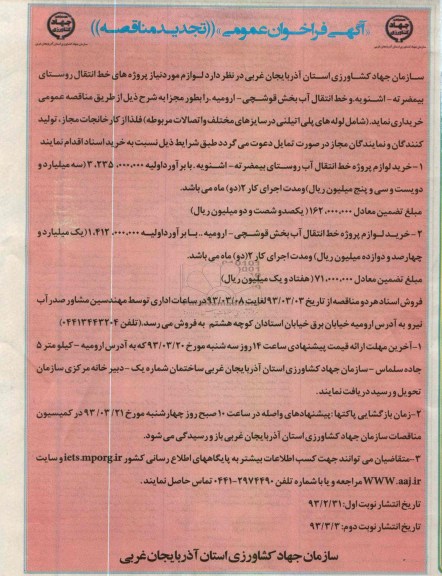 آگهی فراخوان عمومی «((تجدید مناقصه))
جهاد کشاورزی
جهاد کشاورزی
سازمان جهاد کشاورزی استان آذربایجان غربی در نظر دارد لوازم مورد نیاز پروژه های خط انتقال روستای
بیمضرته - اشنویه و خط انتقال آب بخش قوشچی - ارومیه .را بطور مجزا به شرح ذیل از طریق مناقصه عمومی
خریداری نماید.(شامل لوله های پلی اتیلنی در سایزهای مختلف واتصالات مربوطه) فلذا از کارخانجات مجاز ، تولید
کنندگان و نمایندگان مجاز در صورت تمایل دعوت می گردد طبق شرایط ذیل نسبت به خرید اسناد اقدام نمایند
۱- خرید لوازم پروژه خط انتقال آب روستای بیمضرته - اشنویه .با برآورد اولیه ۳,۲۳۵,۰۰۰,۰۰۰ (سه میلیارد و
دویست و سی و پنج میلیون ریال)ومدت اجرای کار ۲(دو) ماه می باشد.
مبلغ تضمین معادل ۱۶۲,۰۰۰,۰۰۰( یکصدو شصت و دو میلیون ریال)
۲- خرید لوازم پروژه خط انتقال آب بخش قوشچی - ارومیه ..با برآورد اولیه ۱,۴۱۲,۰۰۰,۰۰۰ (یک میلیارد و
چهارصد و دوازده میلیون ریال) ومدت اجرای کار ۲(دو) ماه می باشد.
مبلغ تضمین معادل ۷۱,۰۰۰,۰۰۰( هفتاد و یک میلیون ریال)
فروش اسناد هر دو مناقصه از تاریخ ۹۳/۰۳/۰۳ لغایت ۹۳/۰۳/۰۸ در ساعات اداری توسط مهندسین مشاور صدر آب
نیرو به آدرس ارومیه خیابان برق خیابان استادان کوچه هشتم به فروش می رسد.(تلفن ۰۴۴۱۳۴۴۳۲۰۴)
۱- آخرین مهلت ارائه قیمت پیشنهادی ساعت ۱۴ روز سه شنبه مورخ ۹۳/۰۳/۲۰ که به آدرس ارومیه - کیلومتر ۵
جاده سلماس - سازمان جهاد کشاورزی استان آذربایجان غربی ساختمان شماره یک - دبیر خانه مرکزی سازمان
تحویل و رسید دریافت نمایند.
۲- زمان بازگشایی پاکتها: پیشنهادهای واصله در ساعت ۱۰ صبح روز چهارشنبه مورخ ۹۳/۰۳/۲۱ در کمیسیون
مناقصات سازمان جهاد کشاورزی استان آذربایجان غربی باز و رسیدگی می شود.
۳- متقاضیان می توانند جهت کسب اطلاعات بیشتر به پایگاههای اطلاع رسانی کشور iets.mporg.ir و سایت
WWW.aaj.ir مراجعه و یا با شماره تلفن ۲۹۷۴۴۹۰-۰۴۴۱ تماس حاصل نمایند.
تاریخ انتشار نوبت اول: ۹۳/۲/۳۱
تاریخ انتشار نوبت دوم: ۹۳/۳/۳
سازمان جهاد کشاورزی استان آذربایجان غربی